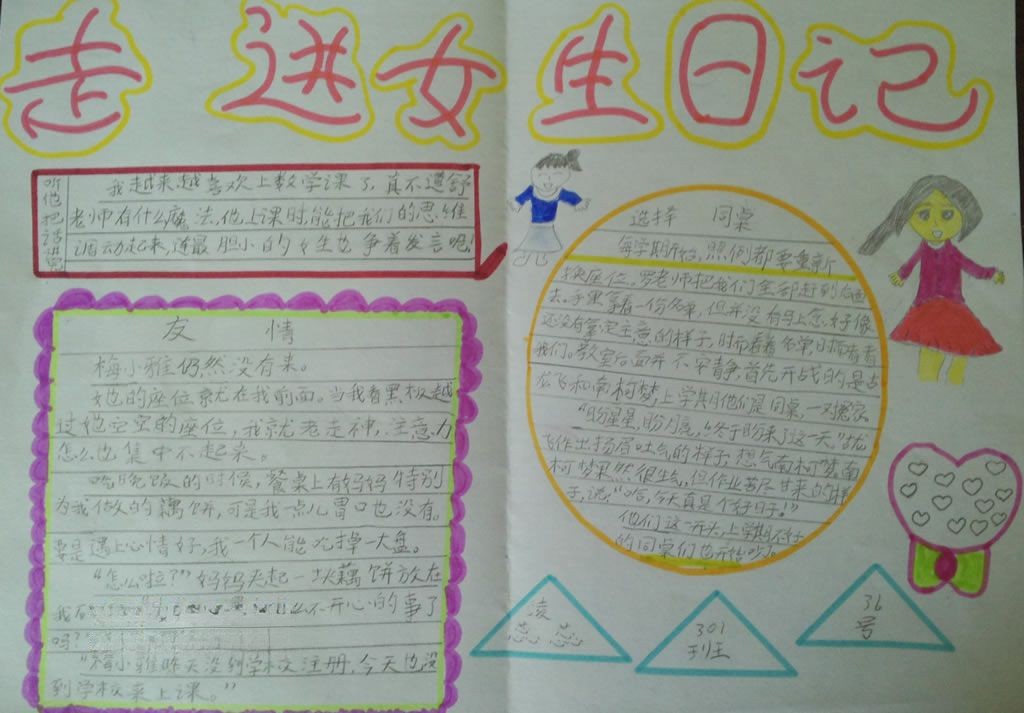 走进女生日记
听他把话讲完
我越来越喜欢上数学课了，真不道舒
老师有什么魔法，他上课时能把我们的思维
调动起来，连最胆小的女生也争着发言呢！
友情
梅小雅仍然没有来。
她的座位就在我前面。当我看黑板越
过她空空的座位，我就老走神，注意力
怎么也集中不起来。
吃晚饭的时侯，餐桌上有妈妈特别
为我做的藕饼，可是我一点儿胃口也没有。
要是遇上心情好，我一个人能吃掉一大盘。
“怎么啦？”妈妈夹起一块藕饼放在
我
不开心的事了
吗？”
“梅小雅昨天没到学校注册，今天也没
到学校来上课。”
选择 同桌
每学期开始，照例都要重新
换座位。罗老师把我们全部赶到后面
去。手里拿着一份名单，但并没有马上念，好像
还没有拿定主意的样子，时而看着名单，时而看看
我们。教室后面并不平静，首先开战的是古
龙飞和南柯梦，上学期他们是同桌，一对冤家
“盼星星，盼月亮，终于盼来了这一天”龙
飞作出扬眉吐气的样子，想气南柯梦，南
柯梦果然很生气，但作出苦尽甘来的样
子，说：“哈，今天真是个好日子！”
他们这一开头，上学期不好
的同桌们也开始吵了。
凌
蕊蕊
301
班
36
号